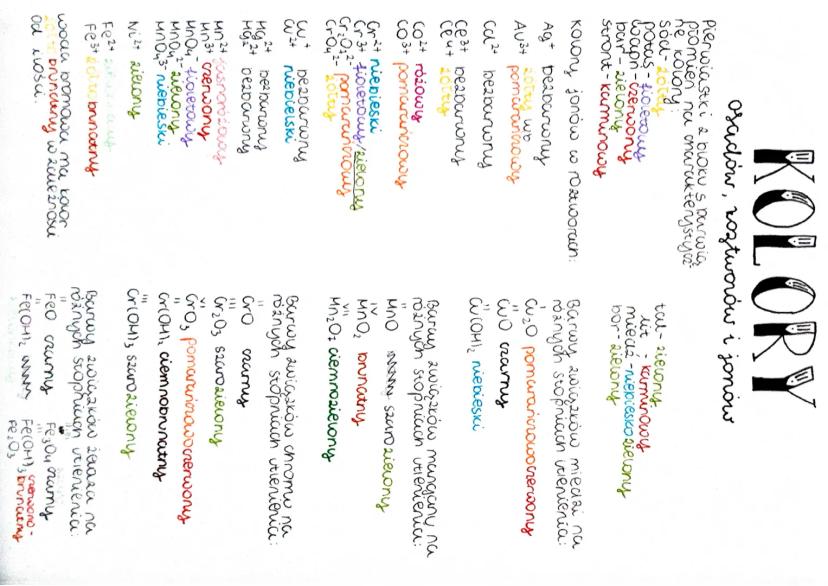 KOLORY
osadów, roztworów i jonów
Pierwiastki z bloku s barwią
płomień na charakterystycz
ne kolory:
sód - żółty
potas - fioletowy
wapń - czerwony
bar - zielony
stront - karminowy
tal - zielony
lit - karminowy
miedź - niebieskozielony
bor - zielony
Kolory jonów w roztworach:
Ag+ bezbarwny
Au3+ żółty lub
pomarańczowy
Cd2+ bezbarwny
Ce3+ bezbarwny
Ce4+ żółty
Co2+ różowy
Co3+ pomarańczowy
Cr2+ niebieski
Cr3+ fioletowy/zielony
Cr2O7 2- pomarańczowy
CrO4 2- żółty
Cu+ bezbarwny
Cu2+ niebieski
Hg2+ bezbarwny
Hg2 2+ bezbarwny
Mn2+ jasnoróżowy
Mn3+ czerwony
MnO4- fioletowy
MnO4 2- zielony
MnO4 3- niebieski
Ni2+ zielony
Fe2+
Fe3+ żółtobrunatny
woda bromowa ma kolor
żółtobrunatny w zależności
od stosu.
Barwy związków miedzi na
różnych stopniach utlenienia:
I
Cu2O pomarańczowoczerwony
II
CuO czarny
II
Cu(OH)2 niebieski
Barwy związków manganu na
różnych stopniach utlenienia:
II
MnO szarozielony
IV
MnO2 brunatny
VII
Mn2O7 ciemnozielony
Barwy związków chromu na
różnych stopniach utlenienia:
II
CrO czarny
III
Cr2O3 szarozielony
VI
CrO3 pomarańczowoczerwony
II
Cr(OH)2 ciemnobrunatny
III
Cr(OH)3 szarozielony
Barwy związków żelaza na
różnych stopniach utlenienia:
II
FeO czarny
II
Fe(OH)2
Fe3O4 czarny
Fe(OH)3 czerwono-
Fe2O3 brunatny